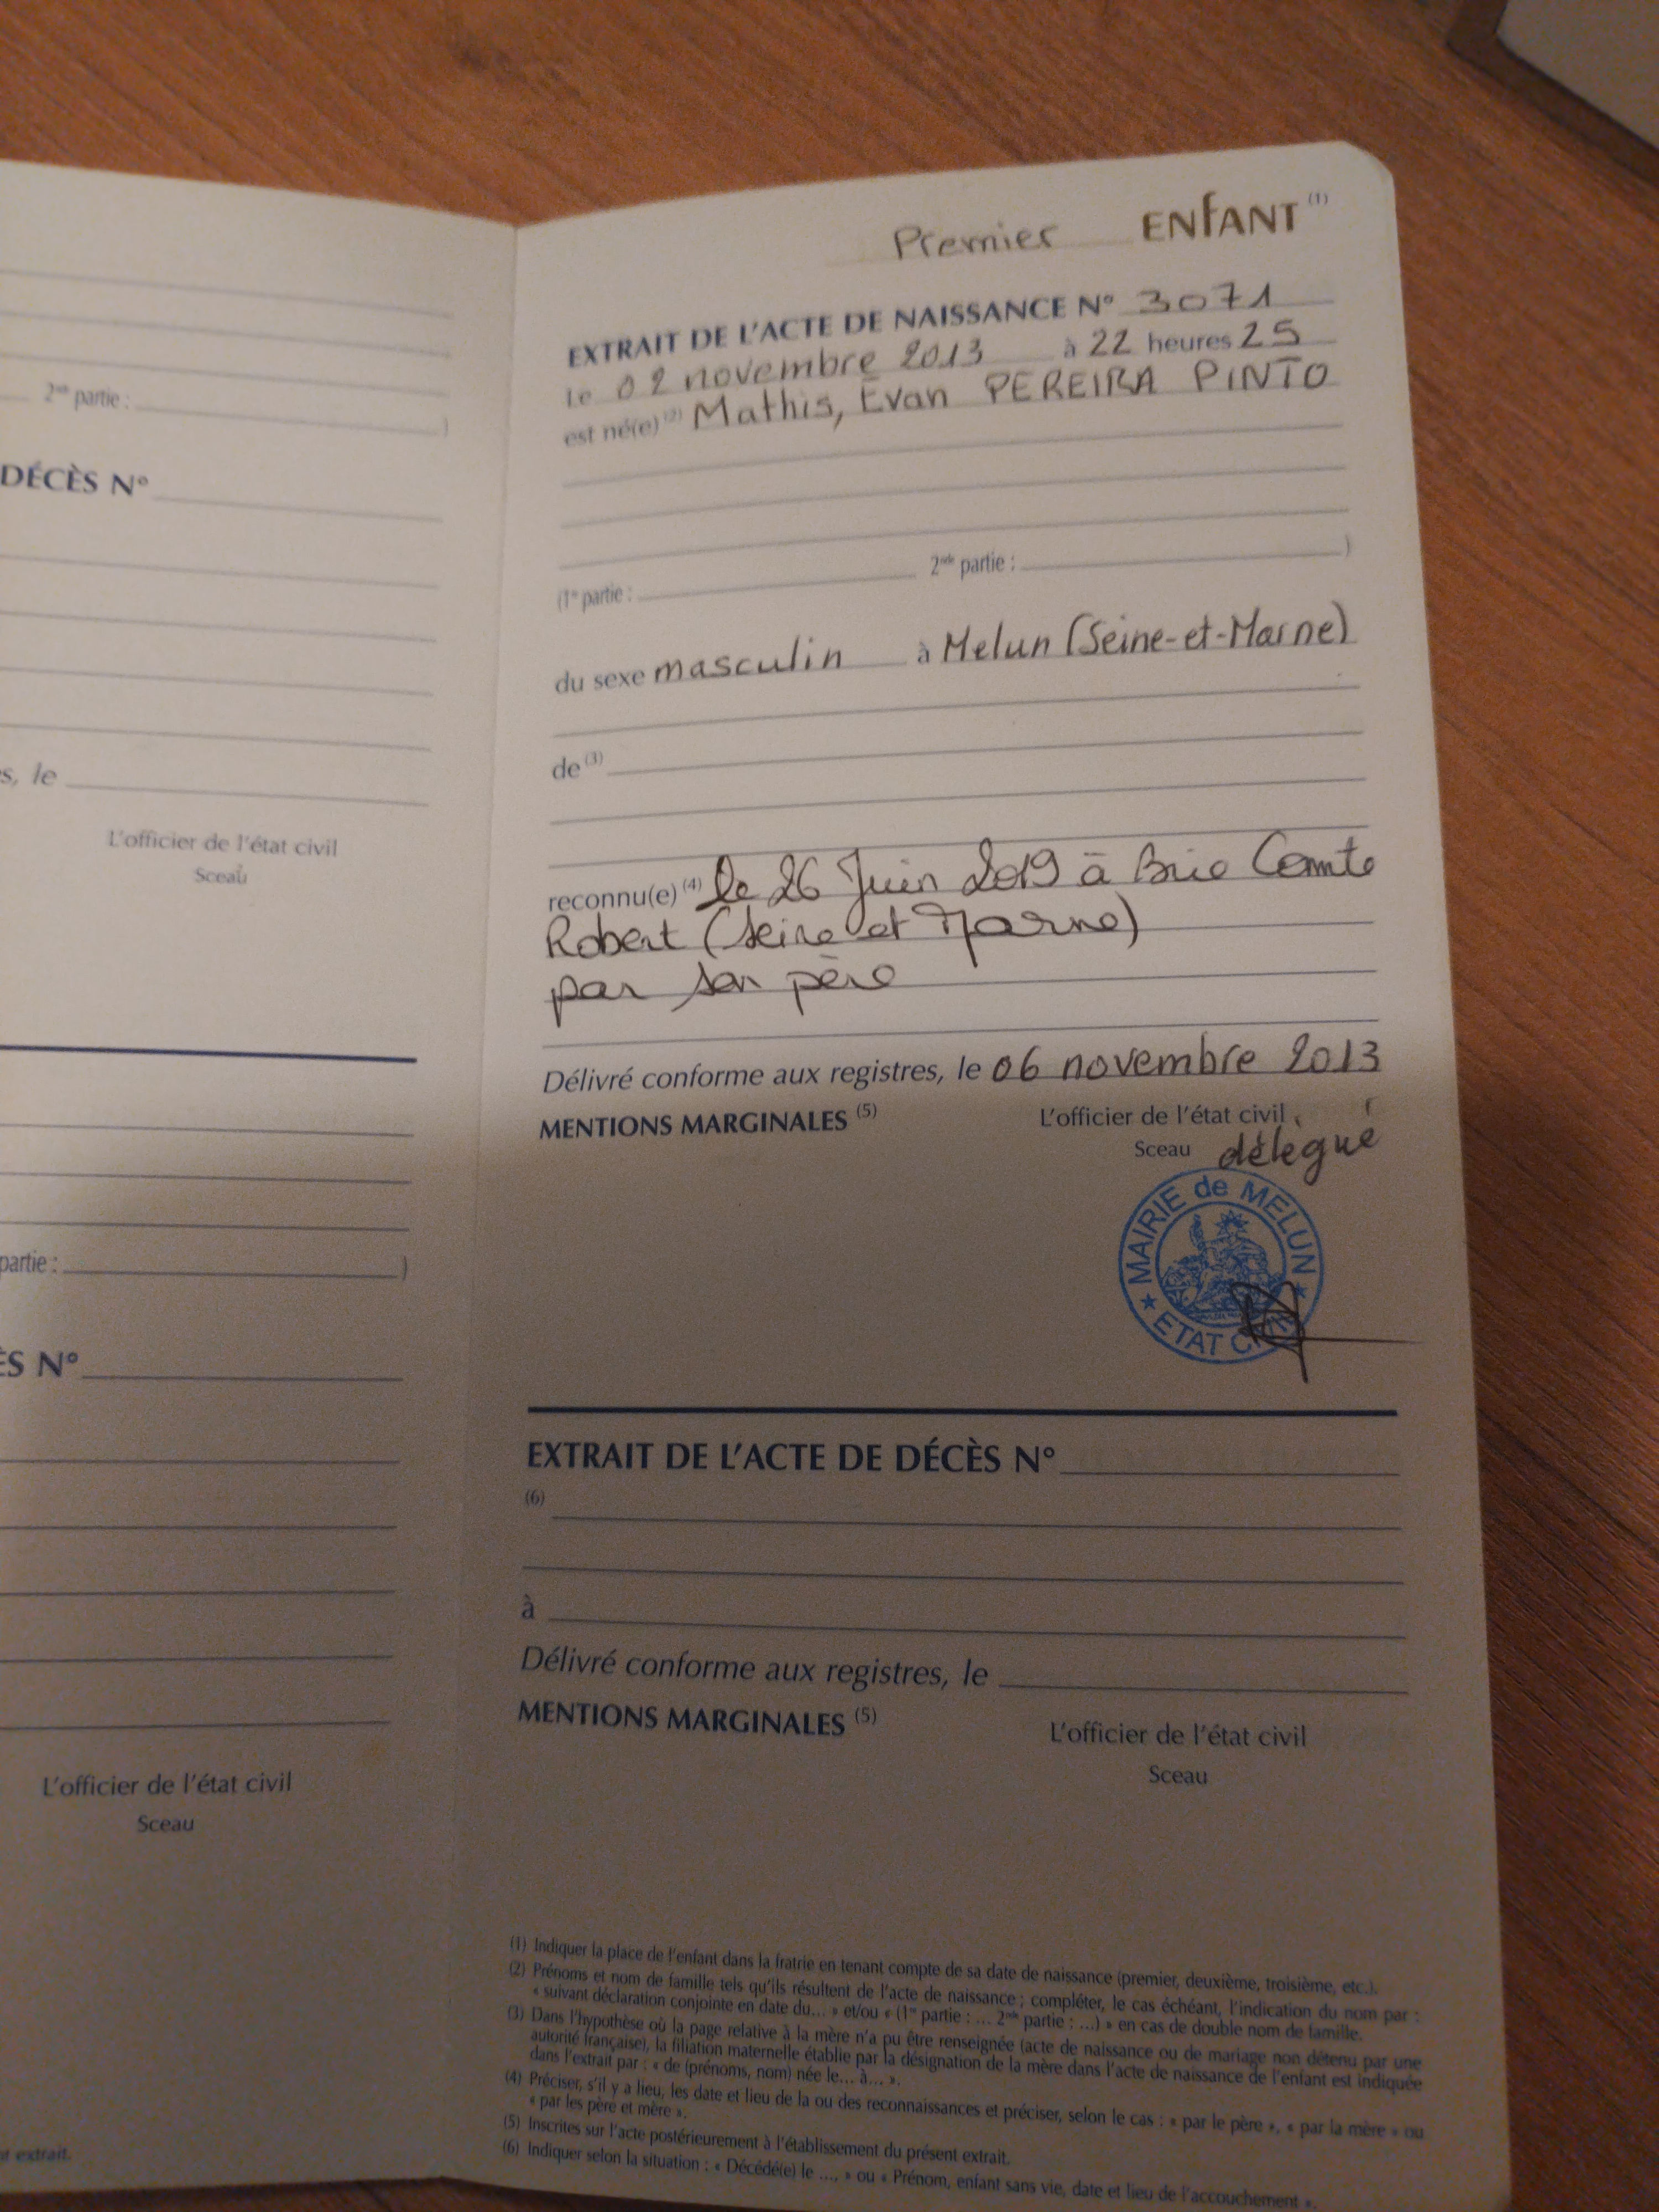 2nde partie : )
DÉCÈS N°
s, le
L'officier de l'état civil
Sceau
partie : )
ÈS N°
L'officier de l'état civil
Sceau
nt extrait.
Premier ENFANT (1)
EXTRAIT DE L'ACTE DE NAISSANCE N° 3071
Le 02 novembre 2013 à 22 heures 25
est né(e) (2) Mathis, Evan PEREIRA PINTO
(1re partie : 2nde partie : )
du sexe masculin à Melun (Seine-et-Marne)
de (3)
reconnu(e) (4) le 26 Juin 2019 à Brie Comte
Robert (Seine et Marne)
par son père
Délivré conforme aux registres, le 06 novembre 2013
MENTIONS MARGINALES (5) L'officier de l'état civil
Sceau délégué
MAIRIE de MELUN
ETAT CIVIL
EXTRAIT DE L'ACTE DE DÉCÈS N°
(6)
à
Délivré conforme aux registres, le
MENTIONS MARGINALES (5) L'officier de l'état civil
Sceau
(1) Indiquer la place de l'enfant dans la fratrie en tenant compte de sa date de naissance (premier, deuxième, troisième, etc.).
(2) Prénoms et nom de famille tels qu'ils résultent de l'acte de naissance ; compléter, le cas échéant, l'indication du nom par :
« suivant déclaration conjointe en date du... » et/ou « (1re partie : ... 2nde partie : ...) » en cas de double nom de famille.
(3) Dans l'hypothèse où la page relative à la mère n'a pu être renseignée (acte de naissance ou de mariage non détenu par une
autorité française), la filiation maternelle établie par la désignation de la mère dans l'acte de naissance de l'enfant est indiquée
dans l'extrait par : « de (prénoms, nom) née le... à... ».
(4) Préciser, s'il y a lieu, les date et lieu de la ou des reconnaissances et préciser, selon le cas : « par le père », « par la mère » ou
« par les père et mère ».
(5) Inscrites sur l'acte postérieurement à l'établissement du présent extrait.
(6) Indiquer selon la situation : « Décédé(e) le ..., » ou « Prénom, enfant sans vie, date et lieu de l'accouchement ».